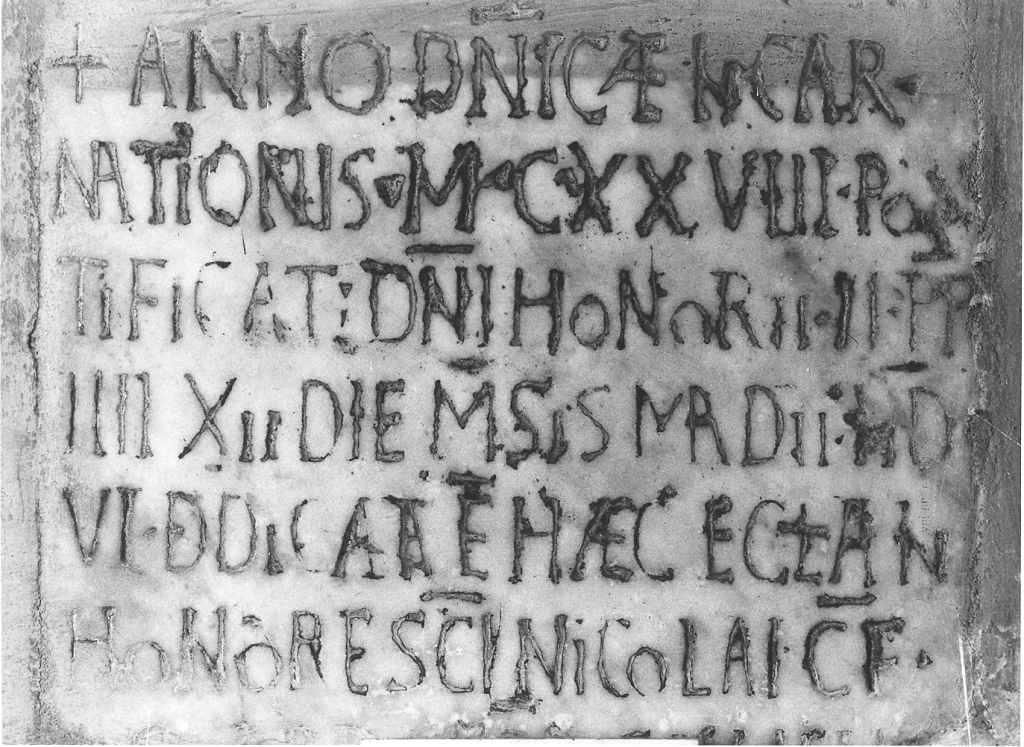 + ANNO DNICÆ INCAR
NATIONIS · M · C · XXVIIII · PO
TIFICAT : DNI HONORII · II · PP
IIII XII DIE MSIS MADII · IND
VI · DDICATA E HÆC ECLA IN
HONORE SCI NICOLAI · CF ·